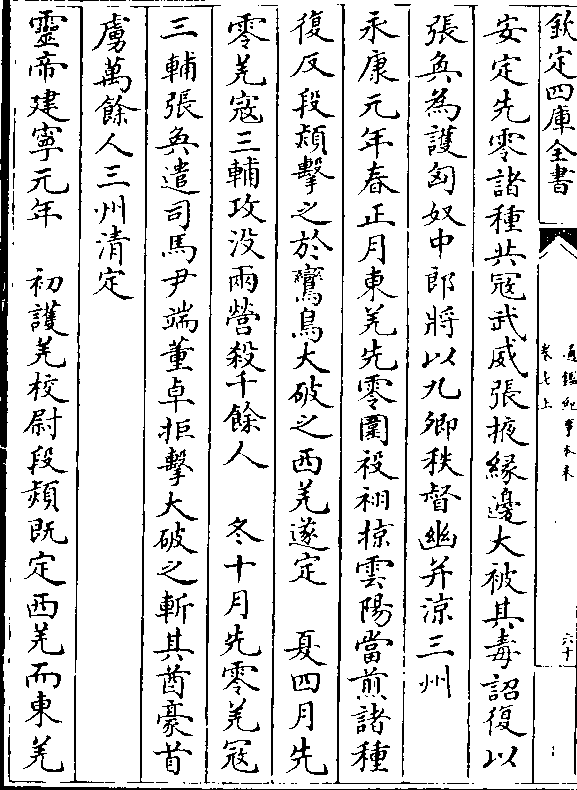 欽定四庫全書
通鑑紀事本末
卷七上
六十
安定先零諸種共冦武威張掖緣邊大被其毒詔復以
張奐為護匈奴中郎將以九卿秩督幽并涼三州
永康元年春正月東羌先零圍祋祤掠雲陽當煎諸種
復反段熲擊之於鸞鳥大破之西羌遂定 夏四月先
零羌寇三輔攻没兩營殺千餘人 冬十月先零羌冦
三輔張奐遣司馬尹端董卓拒擊大破之斬其酋豪首
虜萬餘人三州清定
靈帝建寧元年 初護羌校尉段熲既定西羌而東羌